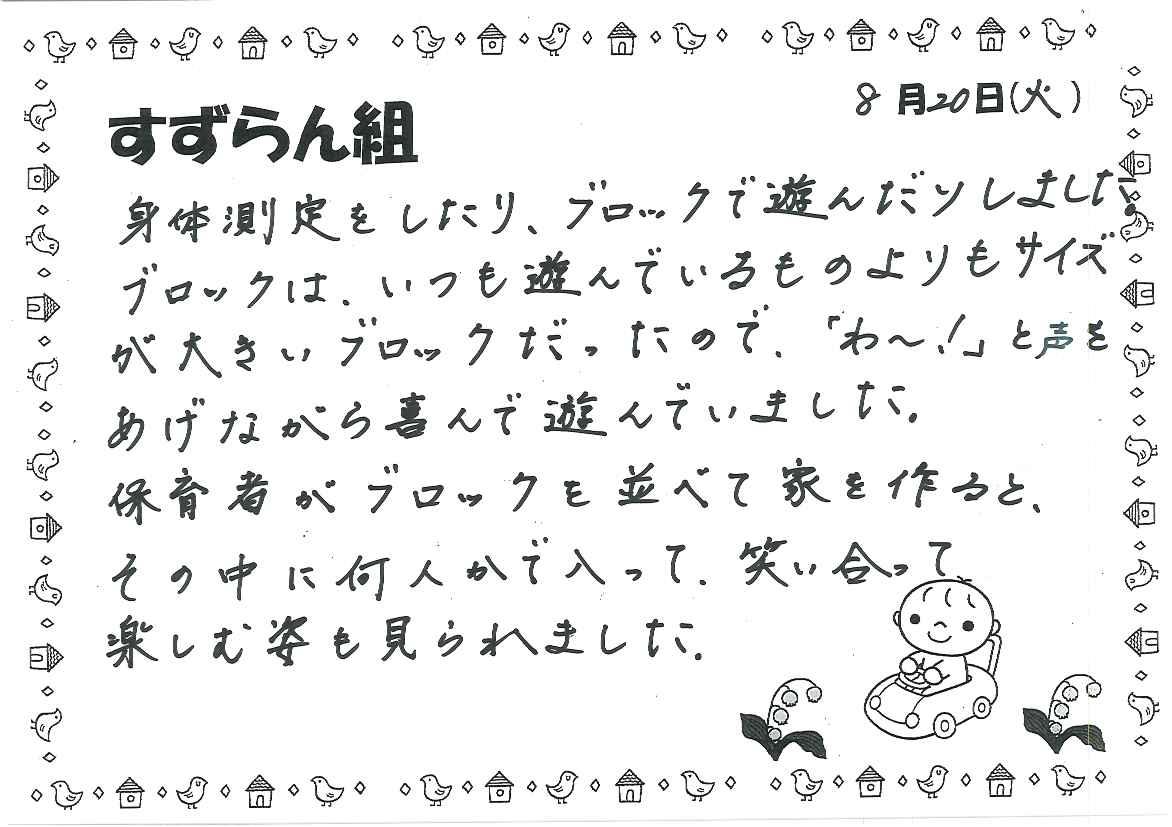 8月20日(火)
すずらん組
身体測定をしたり、ブロックで遊んだりしました。
ブロックは、いつも遊んでいるものよりもサイズ
が大きいブロックだったので、「わ～！」と声を
あげながら喜んで遊んでいました。
保育者がブロックを並べて家を作ると、
その中に何人かで入って、笑い合って
楽しむ姿も見られました。